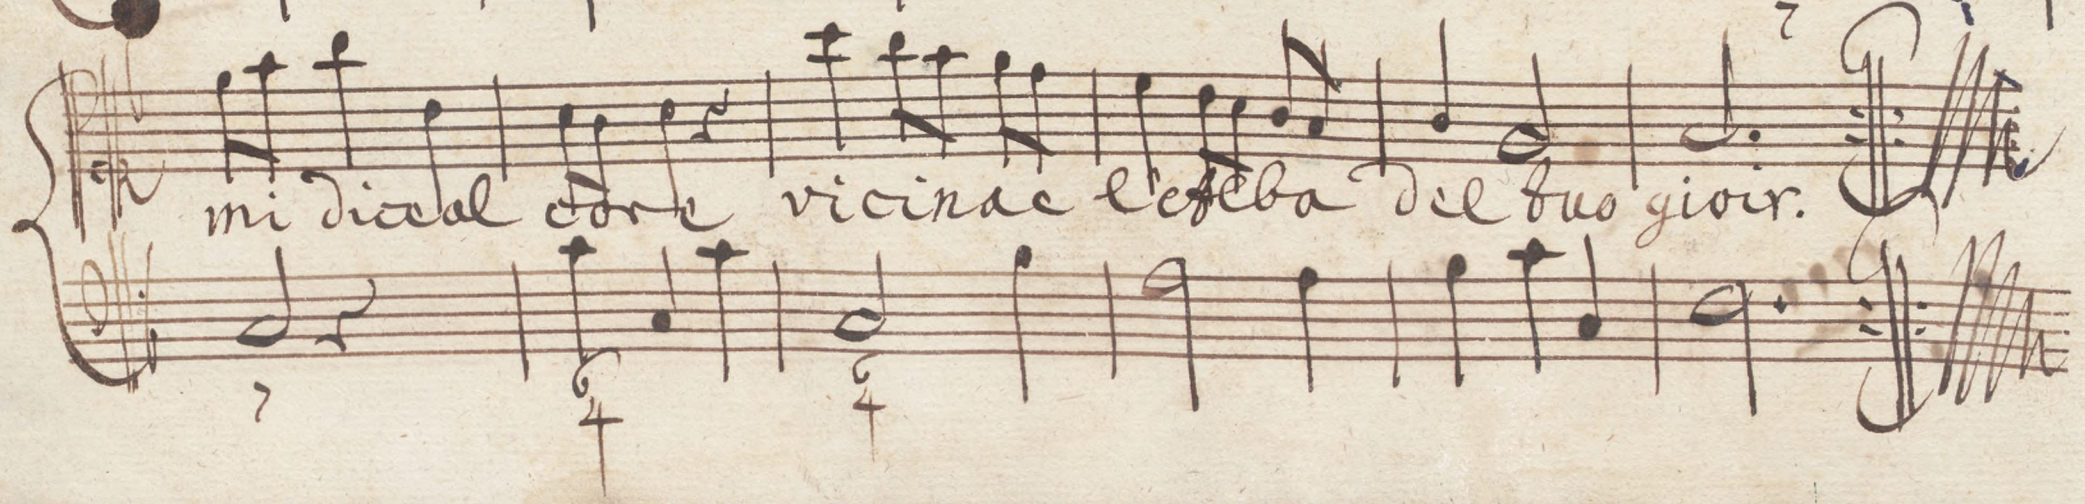 7
mi dice al core vicina e del tuo gioir.
7 6 6
4 4